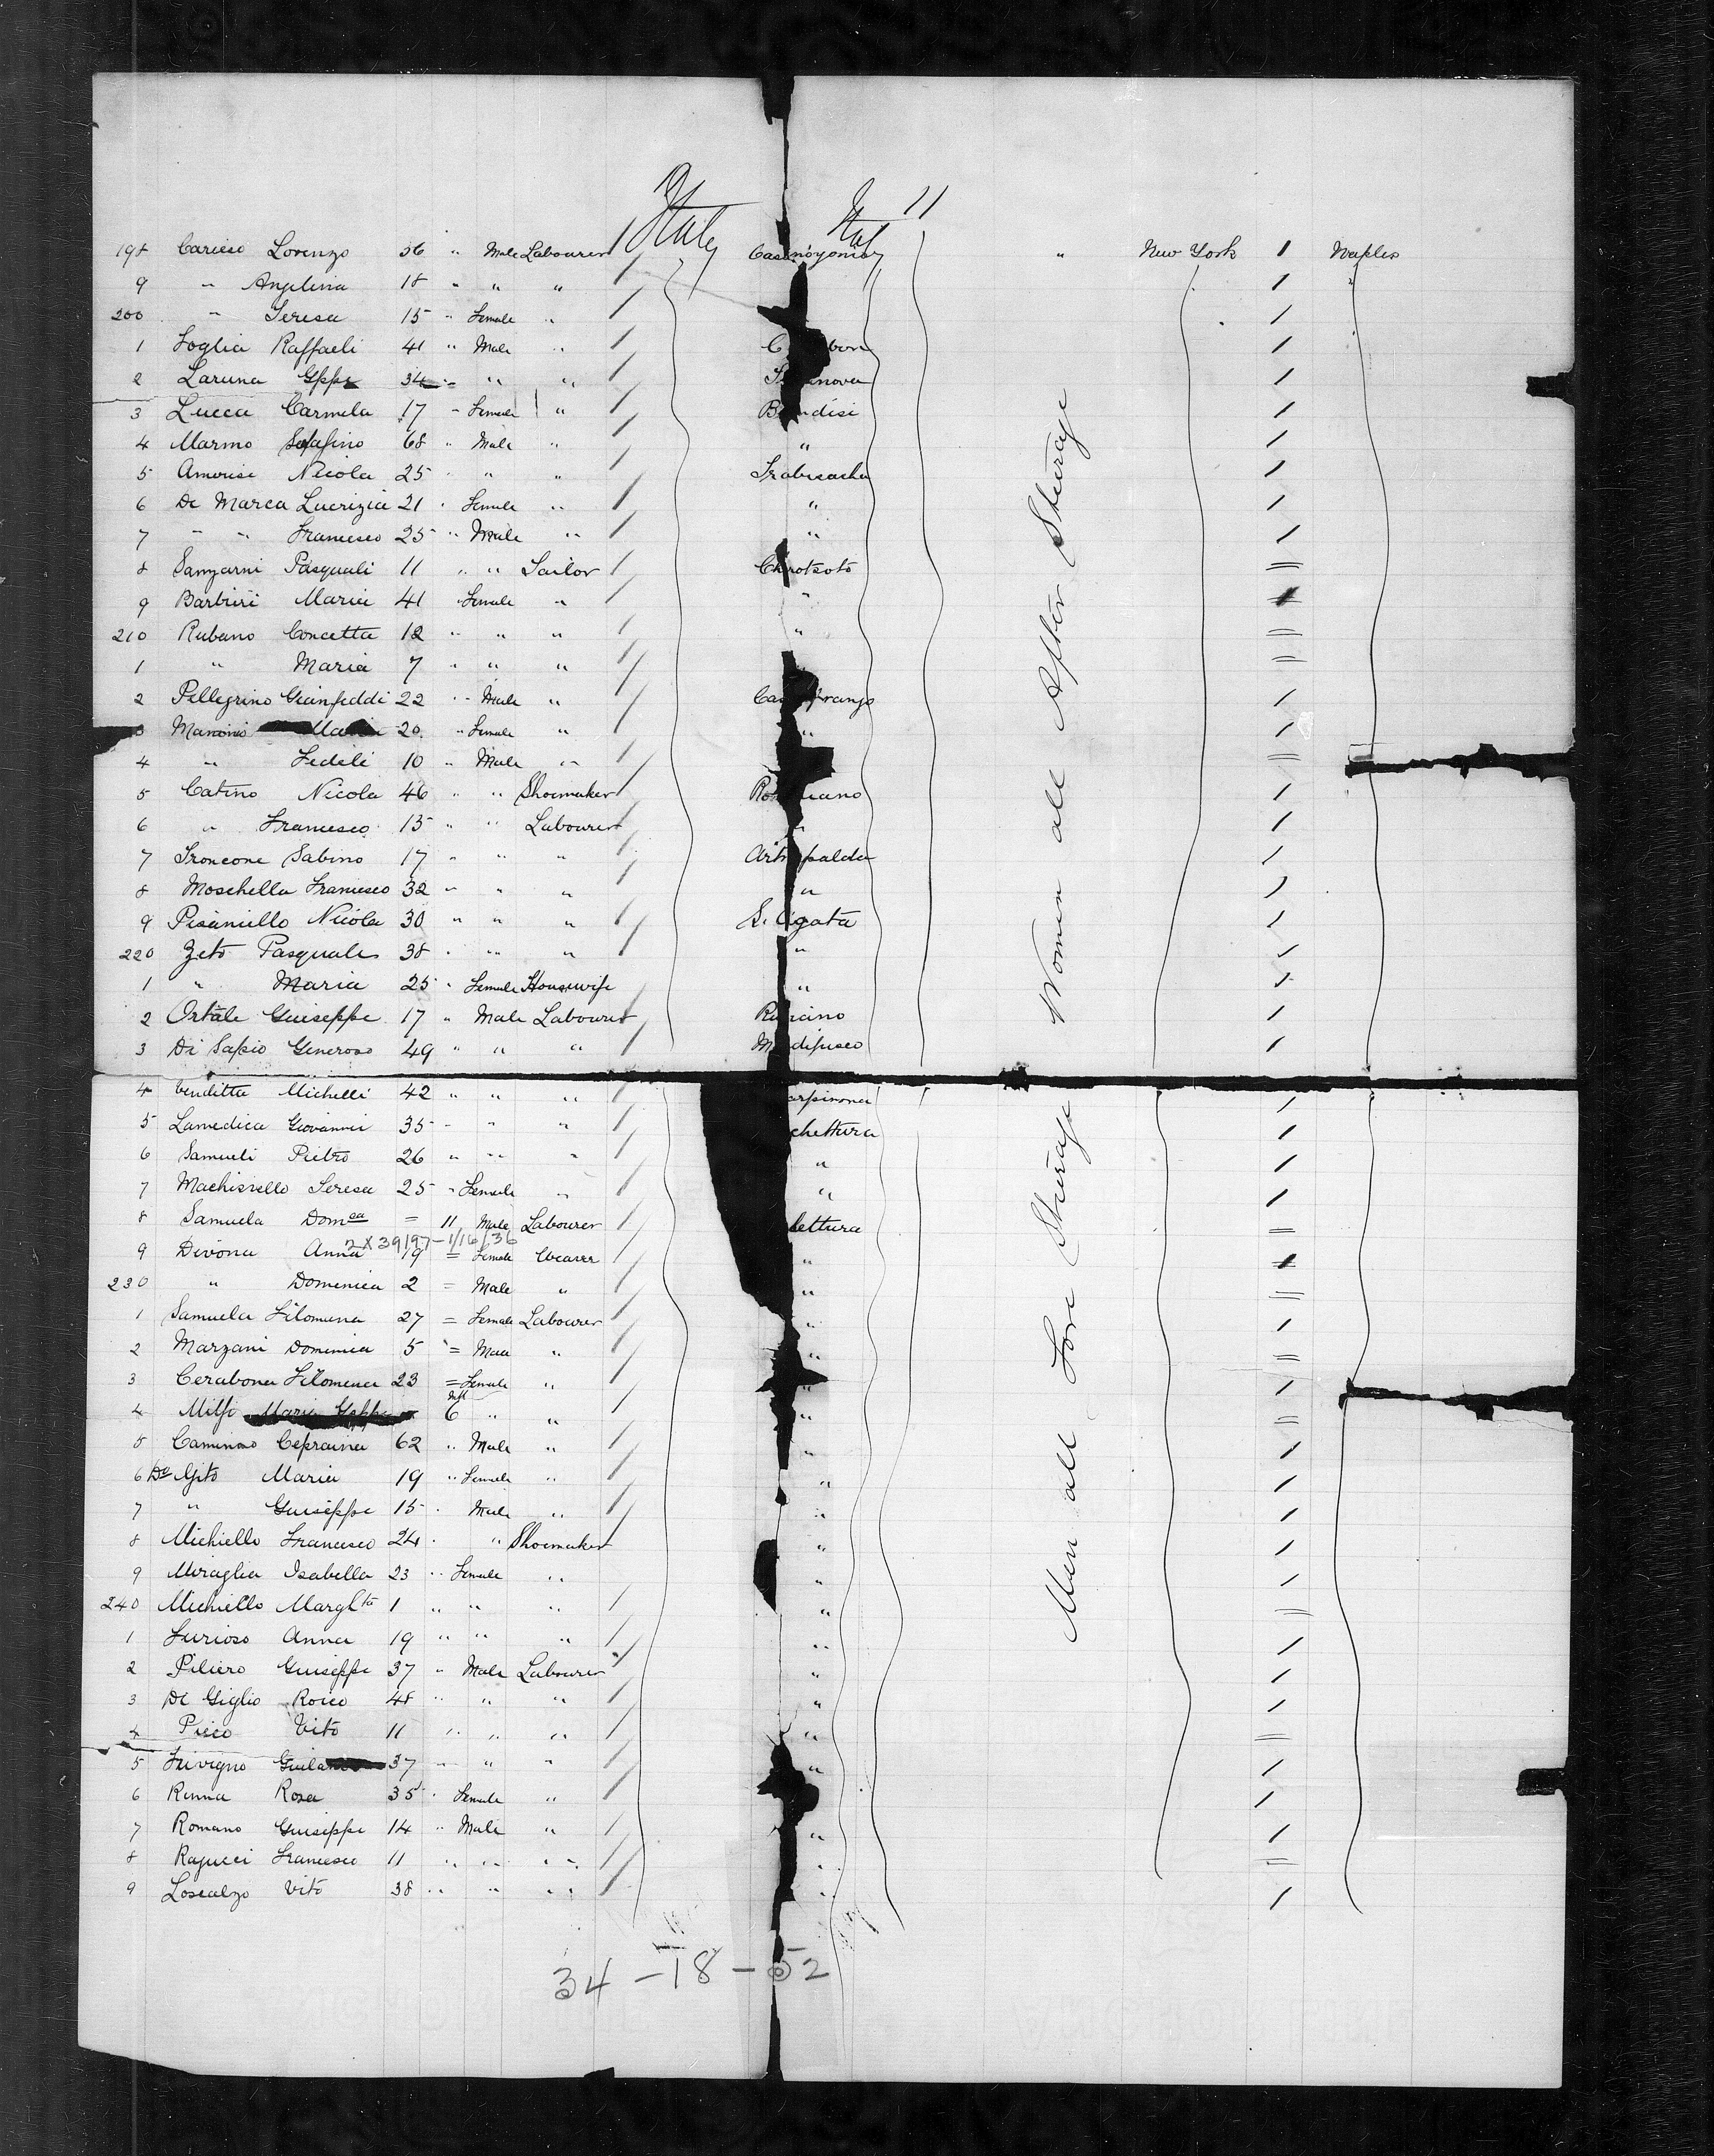 Italy Italy 11
198 Carieso Lorenzo 36 " Male Labourer 1 New York 1 Naples
9 " Angelina 18 " " " 1 1
200 " Teresa 15 " Female " 1 1
1 Foglia Raffaeli 41 " Male " 1 1
2 Laruna Gppe 34 " " " 1 1
3 Lucca Carmela 17 " Female " 1 1
4 Marmo Serafino 68 " Male " " 1
5 Amorise Nicola 25 " " " 1 1
6 De Marca Lucrizia 21 " Female " 1 " 1
7 " " Francesco 25 " Male " 1 " 1
8 Sanzarni Pasquali 11 " " Sailor 1
9 Barbieri Maria 41 " Female " 1 "
210 Rubano Concetta 12 " " " 1 "
1 " Maria 7 " " " 1
2 Pellegrino Gianfeddi 22 " Male " 1 1
3 Maninio Maria 20 " Female " 1 " 1
4 " Fedeli 10 " Male " 1
5 Catino Nicola 46 " " Shoemaker 1 1
6 " Francesco 15 " " Labourer 1 " 1
7 Troncone Sabino 17 " " " 1 Atripalda 1
8 Moschella Francesco 32 " " " 1 " 1
9 Pisaniello Nicola 30 " " " 1 S. Agata 1
220 Zeto Pasquale 38 " " " 1 " 1
1 " Maria 25 " Female Housewife " 1
2 Ortale Guiseppe 17 " Male Labourer 1 1
3 Di Sapio Generoso 49 " " " 1 1
Women all After Steerage
4 Venditta Michelli 42 " " " 1 1
5 Lamedica Giovanni 35 " " " 1 chettura 1
6 Samueli Pietro 26 " " " 1 " 1
7 Machisrello Teresa 25 " Female " 1 " 1
8 Samuela Domca = 11 Male Labourer 1 lettura
2 X 39197 - 1/16/36
9 Divona Anna 19 = Female Weaver 1 "
230 " Domenica 2 = Male " 1 "
1 Samuela Filomena 27 = Female Labourer 1 " 1
2 Marzani Dominica 5 = Male " 1 "
3 Cerabona Filomena 23 = Female " 1 " 1
4 Milfi Maria Gppe Inft 6 " " 1 "
5 Caminoso 62 " Male " 1 " 1
6 Maria 19 " Female " 1 " 1
7 " Guiseppe 15 " Male " 1 " 1
8 Michiello Francesco 24 " " Shoemaker 1 " 1
9 Miraglia Isabella 23 " Female " " 1
240 Michiello Marghta 1 " " " 1 "
1 Furioso Anna 19 " " " 1 " 1
2 Piliero Guiseppe 37 " Male Labourer 1 " 1
3 Di Giglio Rocco 48 " " " 1 " 1
4 Pisco Vito 11 " " " 1 "
5 Trivigno 37 " " " 1 " 1
6 Rinna Rosa 35 " Female " 1 1
7 Romano Guiseppe 14 " Male " 1 " 1
8 Rapucci Francesco 11 " " " 1 "
9 Loscalzo Vito 38 " " " 1 " 1
Men all Fore Steerage
34 - 18 - 52